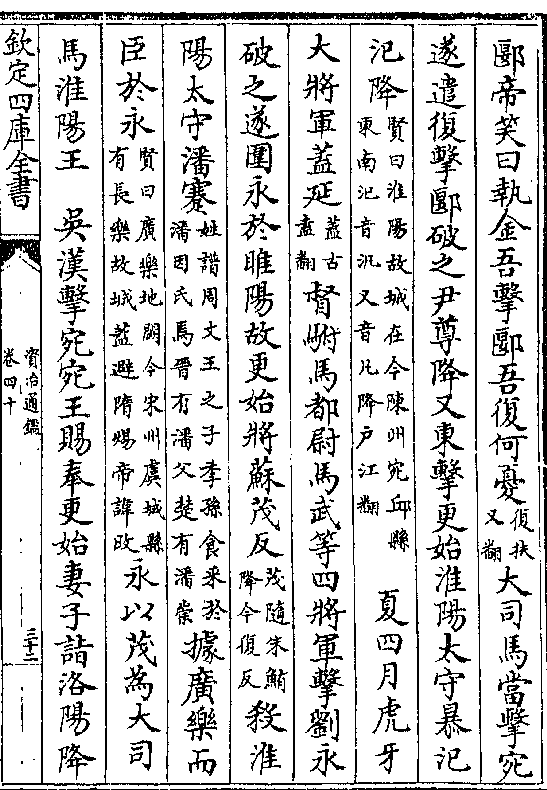 郾帝笑曰執金吾擊郾吾復何憂復扶又翻大司馬當擊宛
遂遣復擊郾破之尹尊降又東擊更始淮陽太守暴汜
汜降賢曰淮陽故城在今陳州宛邱縣東南汜音汎又音凡降户江翻 夏四月虎牙
大將軍蓋延蓋古盍翻督駙馬都尉馬武等四將軍擊劉永
破之遂圍永於睢陽故更始將蘇茂反茂隨朱鮪降今復反殺淮
陽太守潘蹇姓譜周文王之子季孫食采於潘因氏焉晉有潘父楚有潘崇據廣樂而
臣於永賢曰廣樂地闕今宋州虞城縣有長樂故城蓋避隋煬帝諱改永以茂為大司
馬淮陽王 吳漢擊宛宛王賜奉更始妻子詣洛陽降
欽定四庫全書
資治通鑑
卷四十
三十二